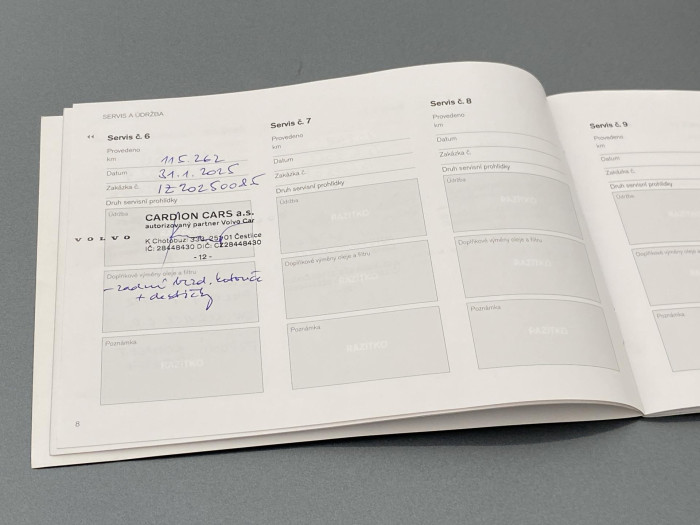 SERVIS A ÚDRŽBA
Servis č. 6
Provedeno
km 115.262
Datum 31.1.2025
Zakázka č. IZ20250085
Druh servisní prohlídky
Údržba
CARDION CARS a.s.
autorizovaný partner Volvo Car
VOLVO
K Chotobuzi 330, 25101 Čestlice
IČ: 28448430 DIČ: CZ28448430
- 12 -
Doplňkové výměny oleje a filtru
- zadní brzd. kotouče
+ destičky
Poznámka
RAZÍTKO
8
Servis č. 7
Provedeno
km
Datum
Zakázka č.
Druh servisní prohlídky
Údržba
RAZÍTKO
Doplňkové výměny oleje a filtru
RAZÍTKO
Poznámka
RAZÍTKO
Servis č. 8
Provedeno
km
Datum
Zakázka č.
Druh servisní prohlídky
Údržba
RAZÍTKO
Doplňkové výměny oleje a filtru
RAZÍTKO
Poznámka
RAZÍTKO
Servis č. 9
Provedeno
km
Datum
Zakázka č.
Druh servisní prohlídky
Údržba
Doplňkové výměny
Poznámka